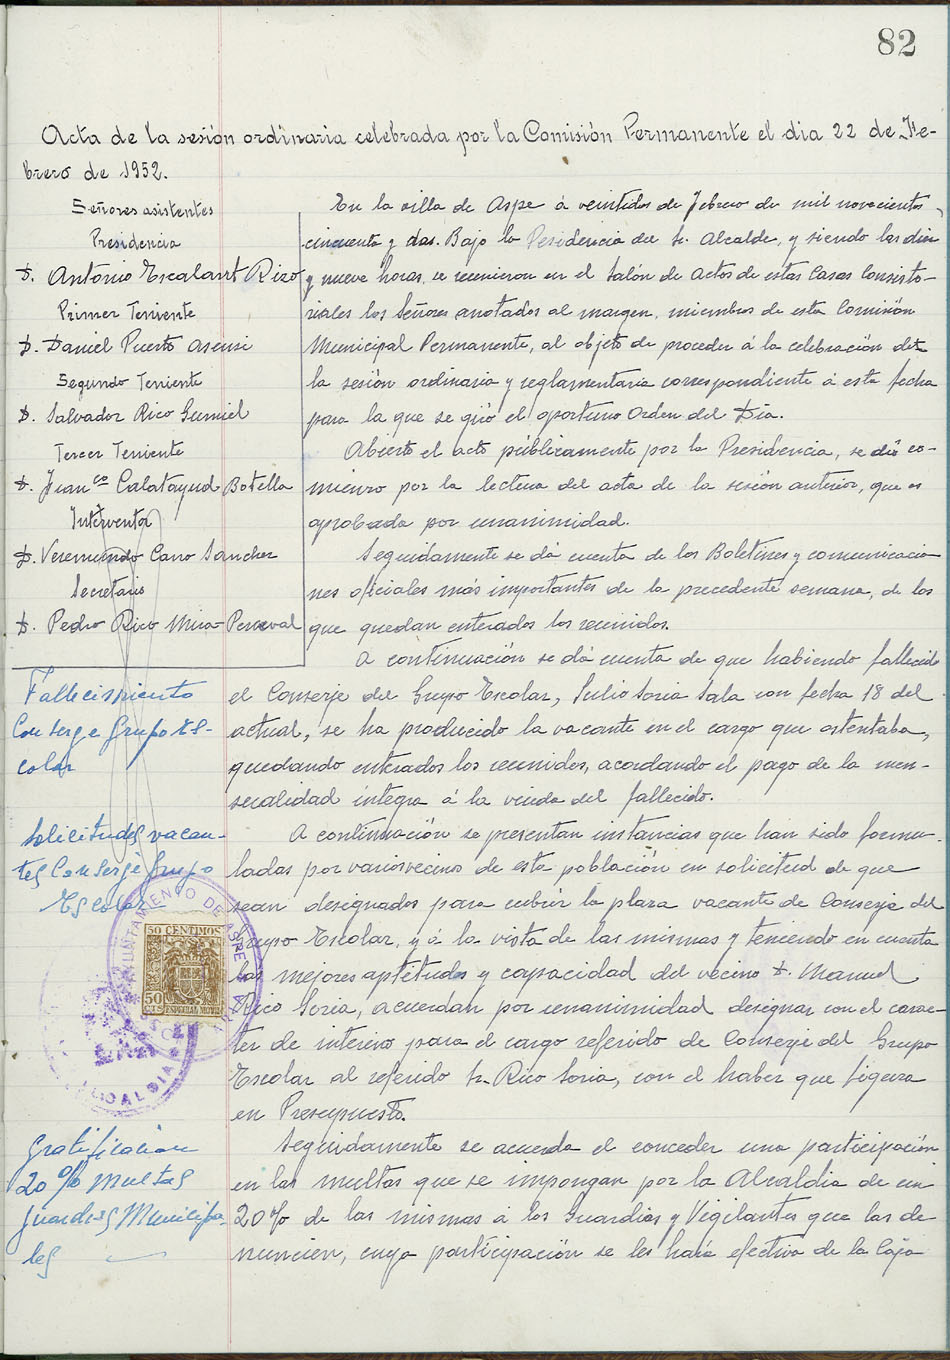 82
Acta de la sesión ordinaria celebrada por la Comisión Permanente el dia 22 de Fe-
brero de 1952.
Señores asistentes
Presidencia
D. Antonio Escalant Rico
Primer Teniente
D. Daniel Puerto Asensi
Segundo Teniente
D. Salvador Rico Gumiel
Tercer Teniente
D. Juan Calatayud Botella
Interventor
D. Veremundo Cano Sancher
Secretario
D. Pedro Rico Mira-Perceval
En la villa de Aspe á veintidos de febrero de mil novecientos
cincuenta y dos. Bajo la Presidencia del Sr. Alcalde, y siendo las diez
y nueve horas, se reunieron en el Salón de actos de estas Casas Consisto-
riales los Señores anotados al margen, miembros de esta Comisión
Municipal Permanente, al objeto de proceder á la celebración de
la sesión ordinaria y reglamentaria correspondiente á esta fecha
para la que se giró el oportuno Orden del Día.
Abierto el acto públicamente por la Presidencia, se dió co-
mienzo por la lectura del acta de la sesión anterior, que es
aprobada por unanimidad.
Seguidamente se dá cuenta de los Boletines y comunicacio
nes oficiales más importantes de la precedente semana, de los
que quedan enterados los reunidos.
A continuación se dá cuenta de que habiendo fallecido
el Conserje del Grupo Escolar, Julio Soria Sala con fecha 18 del
actual, se ha producido la vacante en el cargo que ostentaba,
quedando enterados los reunidos, acordando el pago de la men-
sualidad integra á la viuda del fallecido.
A continuación se presentan instancias que han sido formu-
ladas por varios vecinos de esta población en solicitud de que
sean designados para cubrir la plaza vacante de Conserje del
Grupo Escolar, y á la vista de las mismas y teniendo en cuenta
las mejores aptitudes y capacidad del vecino D. Manuel
Rico Soria, acuerdan por unanimidad designar con el carac-
ter de interino para el cargo referido de Conserje del Grupo
Escolar al referido Sr. Rico Soria, con el haber que figura
en Presupuesto.
Seguidamente se acuerda el conceder una participación
en las multas que se impongan por la Alcaldia de un
20% de las mismas á los Guardias y Vigilantes que las de
nuncien, cuya participación se les hará efectiva de la Caja
Fallecimiento
Conserge Grupo Es-
colar
Solicitudes vacan-
tes Conserge Grupo
Escolar
AYUNTAMIENTO DE ASPE
50 CENTIMOS
50
CTS
ESPECIAL MOVIL
ALCALDIA
Gratificacion
20% Multas
Guardias Municipa
les